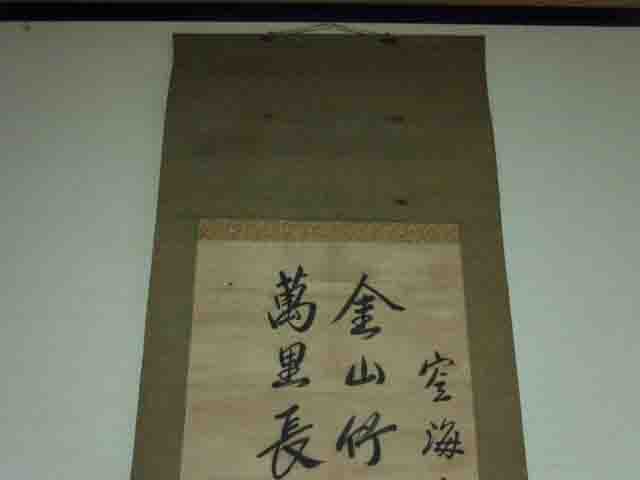 空海
金山竹
萬里長